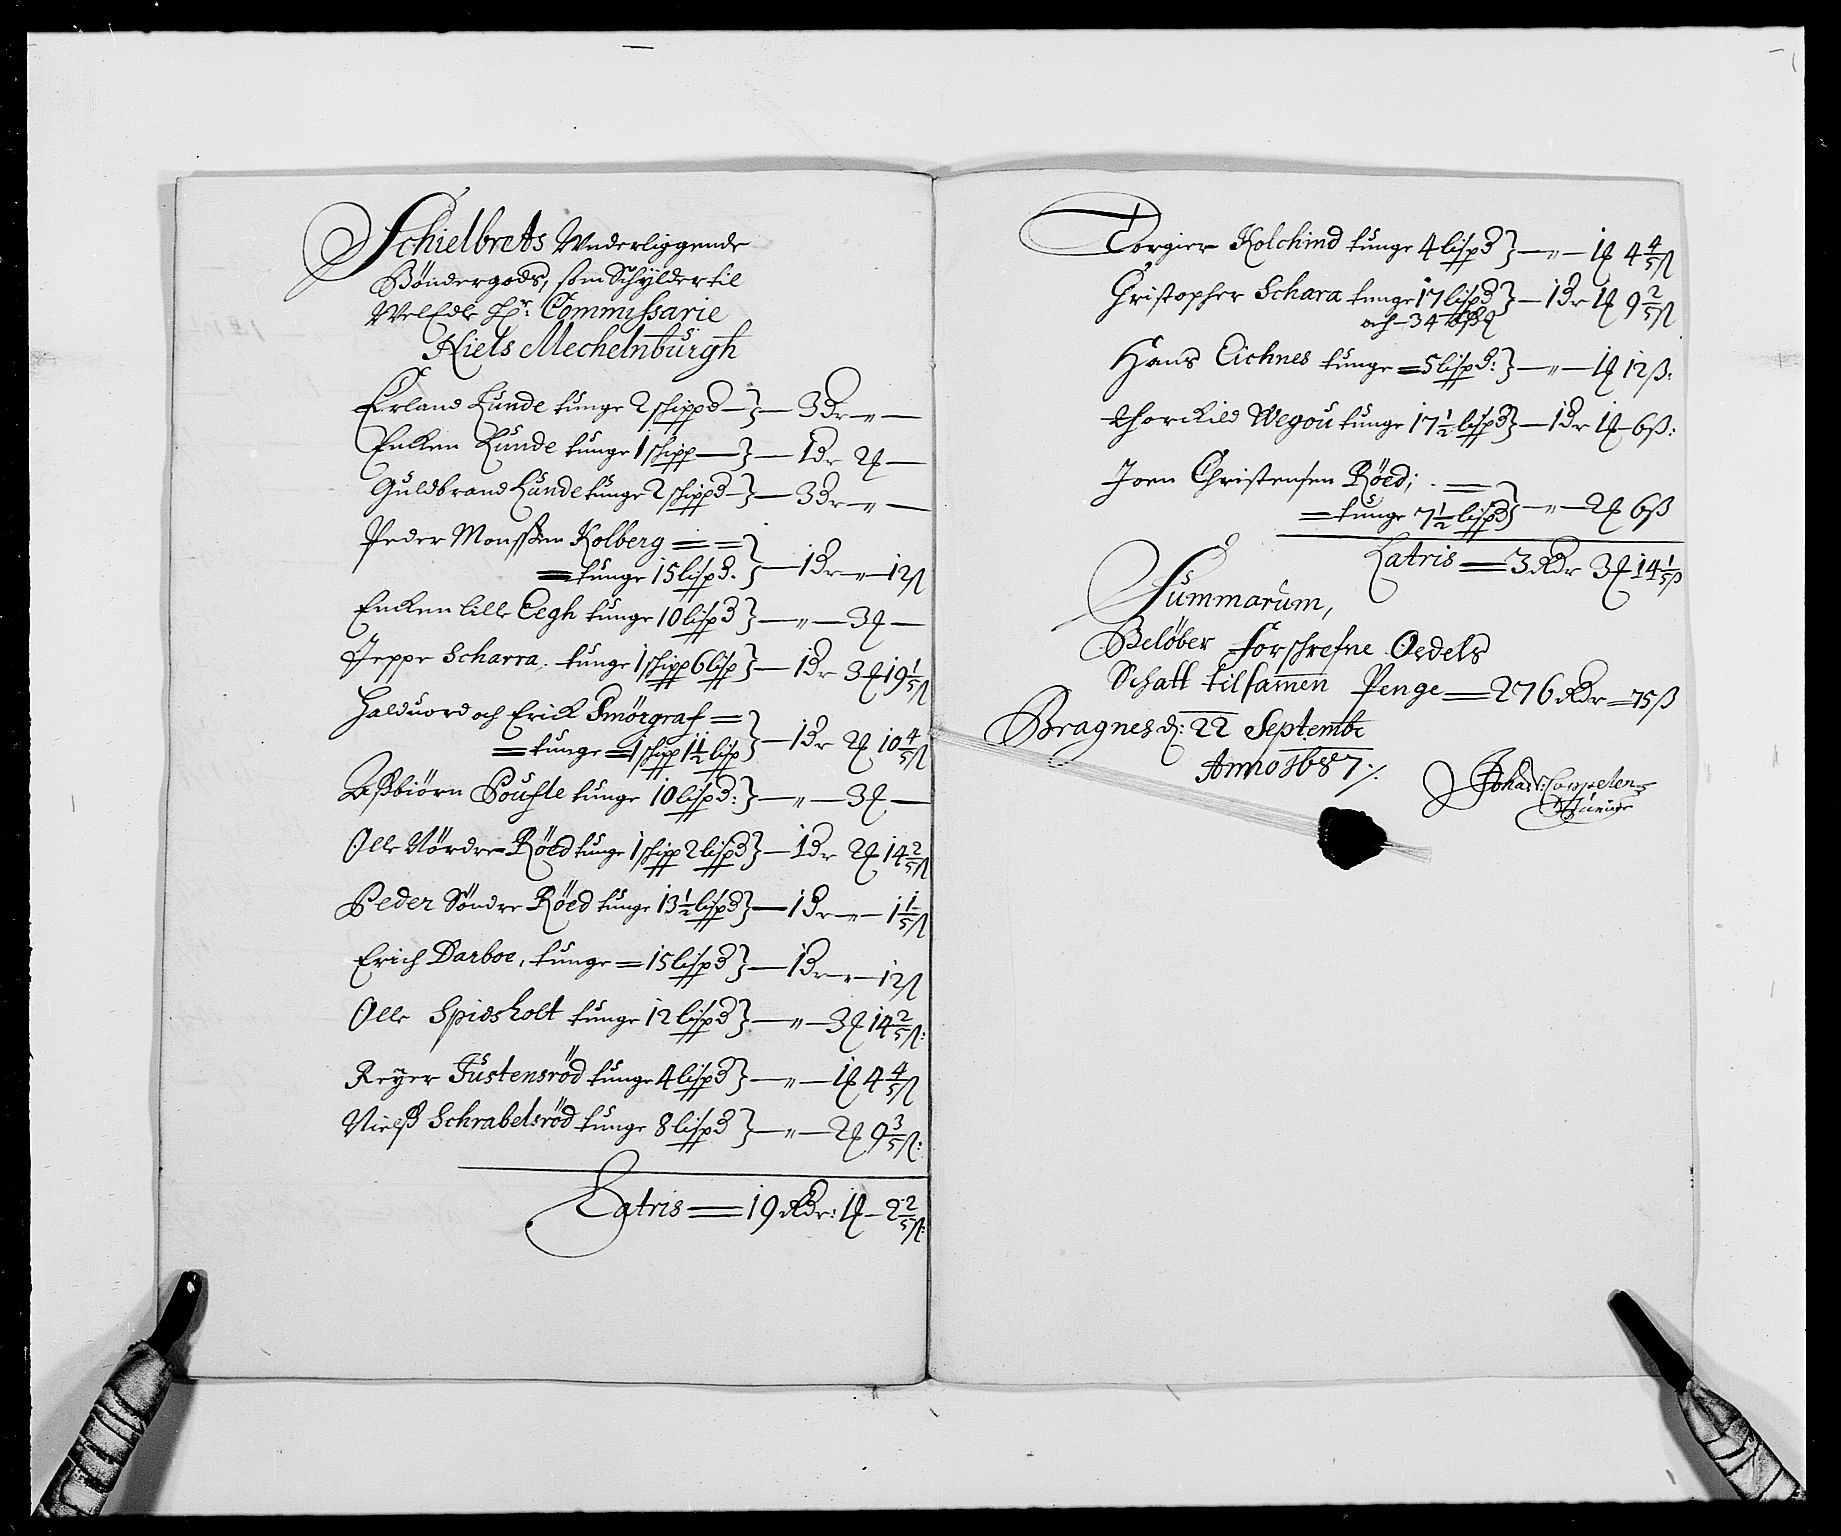 Schielbrets Wnderliggende
Böndergods, som Schylder til
WelEdle Hr: Commissarie
Niels Mechelnburgh
Erland Lunde tunge 2 schippd — 3 dr — " —
Encken Lunde tunge 1 schipp — 1 dr 2 ₰ —
Guldbrand Lunde tunge 2 schippd — 3 dr — " —
Peder Monssen Kolberg = =
= tunge 15 lispd. — 1 dr — " — 12 ß
Encken lille Eegh tunge 10 lispd — " — 3 ₰ —
Jeppe Scharra. tunge 1 schipp 6 lisp — 1 dr 3 ₰ 19 1/5 ß
Halduord och Erick Smörgraf =
= tunge = 1 schipp 1 1/2 lisp — 1 dr 2 ₰ 10 4/5 ß
Assbiörn tunge 10 lispd: — " — 3 ₰ —
Olle Nördre Röed tunge 1 schipp 2 lispd — 1 dr 2 ₰ 14 2/5 ß
Peder Söndre Röed tunge 13 1/2 lispd — 1 dr — " — 1 1/5 ß
Erich Darboe, tunge = 15 lispd — 1 dr — " — 12 ß
Olle Spidsholt tunge 12 lispd — " — 3 ₰ 14 2/5 ß:
Reyer Justensröd tunge 4 lispd — " — 1 ₰ 4 4/5 ß
Nielß Schrabelsröd tunge 8 lispd — " — 2 ₰ 9 3/5 ß:
Latris = 19 Rdr: 1 ₰ — 2 2/5 ß:
Torgier Kolchind tunge 4 lispd — " — 1 ₰ 4 4/5 ß
Christopher Schara tunge 17 lispd — 1 dr 1 ₰ 9 2/5 ß
och — 34
Hans Eichnes tunge = 5 lispd: — " — 1 ₰ 12 ß:
Thorckild Wegou tunge 17 1/2 lispd — 1 dr 1 ₰ 6 ß:
Joen Christensen Röed; =
= tunge 7 1/2 lispd — " — 2 ₰ 6 ß
Latris = 3 Rdr 3 ₰ 14 1/5 ß
Summarum,
Belöber Forschrefne Oedels
Schatt tilsamen Penge = 276 Rdr = 75 ß
Bragnes d: 22 Septembr
Anno 1687 ./.
Johan: Coppelen